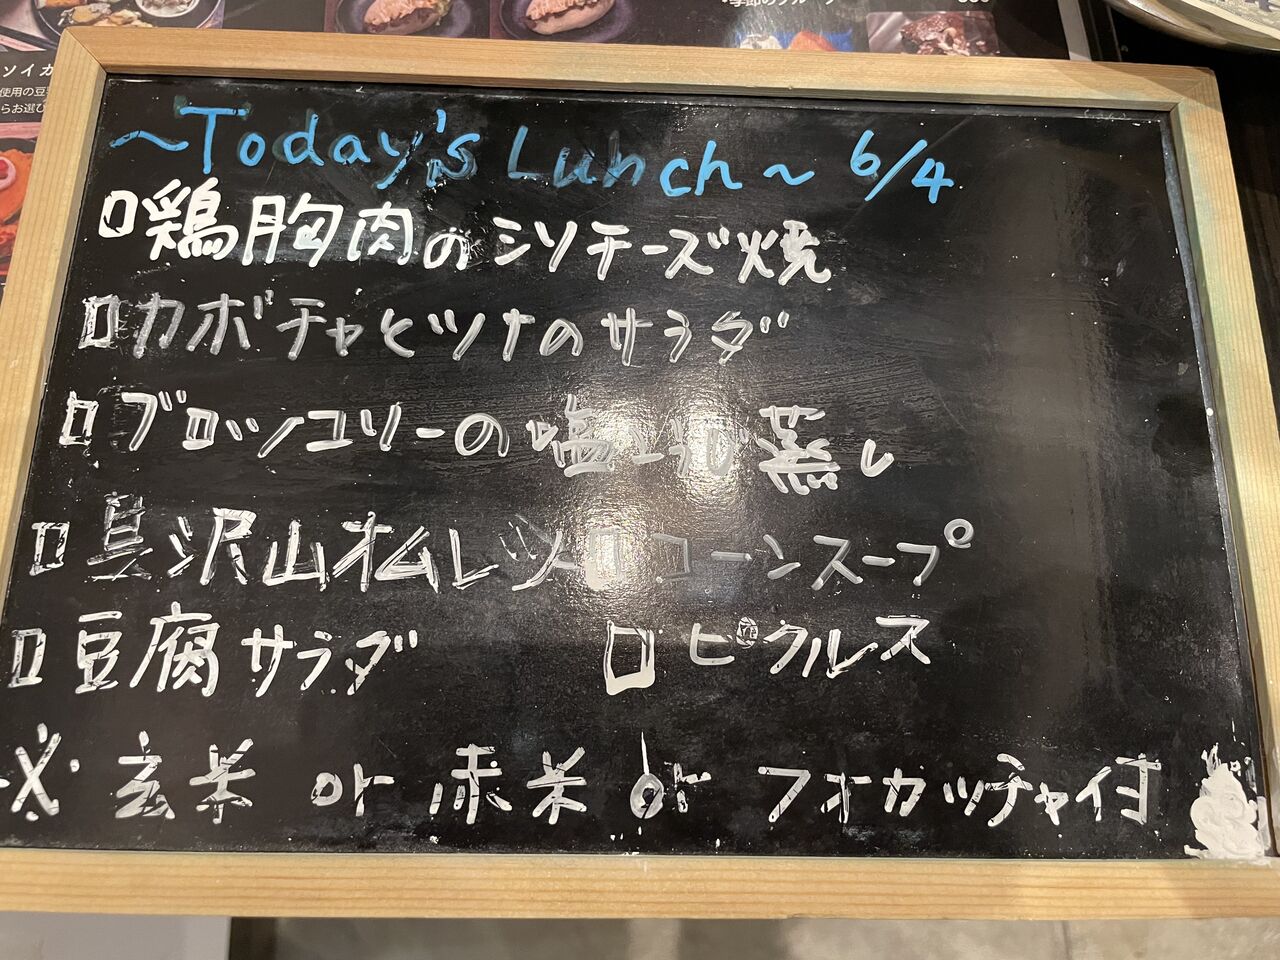 ・季節のフルーツ
ソイカ
使用の豆
らお選び
~Today's Lunch~ 6/4
□鶏胸肉のシソチーズ焼
□カボチャとツナのサラダ
□ブロッコリーの塩こうじ蒸し
□具沢山オムレツ □コーンスープ
□豆腐サラダ □ピクルス
※玄米 or 赤米 or フォカッチャ付